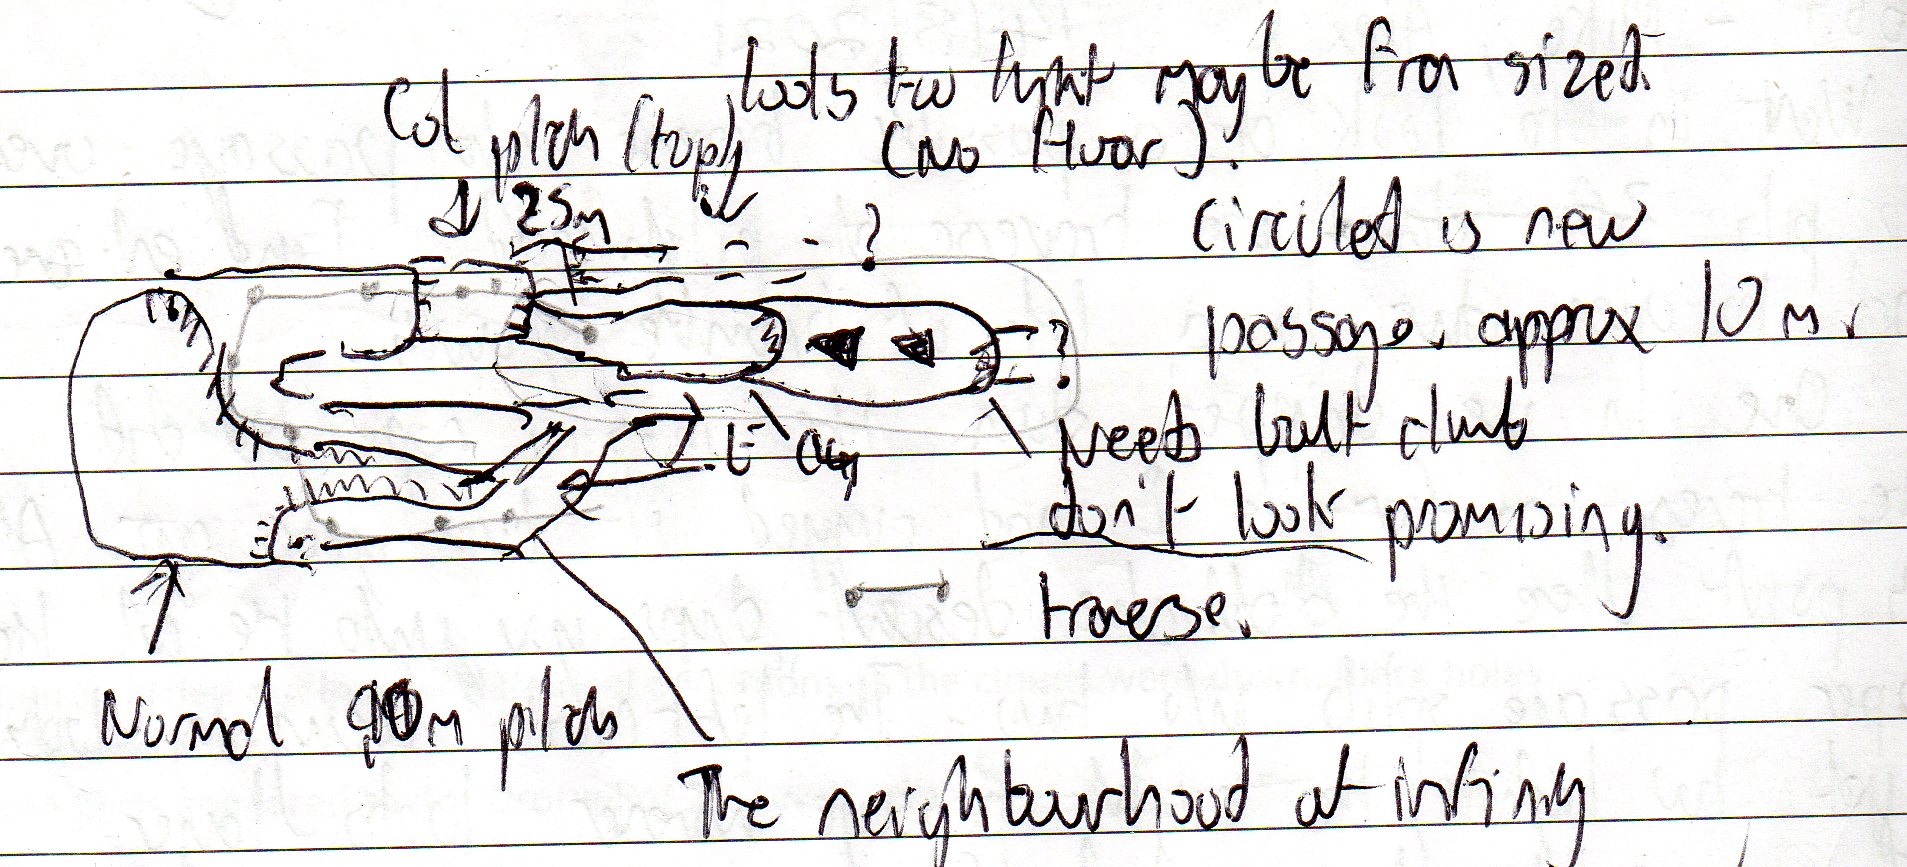 looks too tight maybe Fran sized.
Col pitch (top) (No floor).
25m
?
circiled is new
passage. approx 10 m.
?
Needs bolt climb
don't look promising.
traverse.
Normal 90m pitch
The neighbourhood at infinity